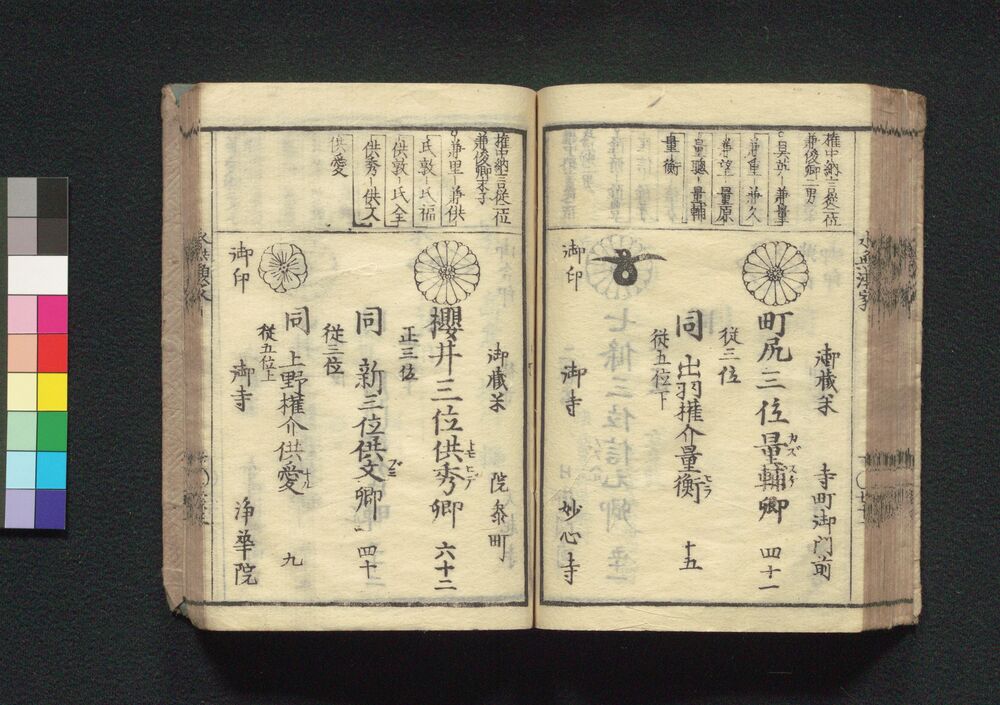 権中納言従二位
兼俊卿二男
具英－兼量
兼重 兼久
兼望 量原
量聰－量輔
量衡
御蔵米 寺町御門前
町尻三位量輔卿 四十一
カズスケ
従三位
同 出羽権介量衡 十五
ヒラ
従五位下
御印 御寺 妙心寺
権中納言従二位
兼俊卿末子
兼里－兼供
氏敦－氏福
供敦－氏全
供秀－供文
供愛
御蔵米 院参町
櫻井三位供秀卿 六十二
トモヒデ
正三位
同 新三位供文卿 四十
ブミ
従三位
同 上野権介供愛 九
ナル
従五位上
御印 御寺 浄華院